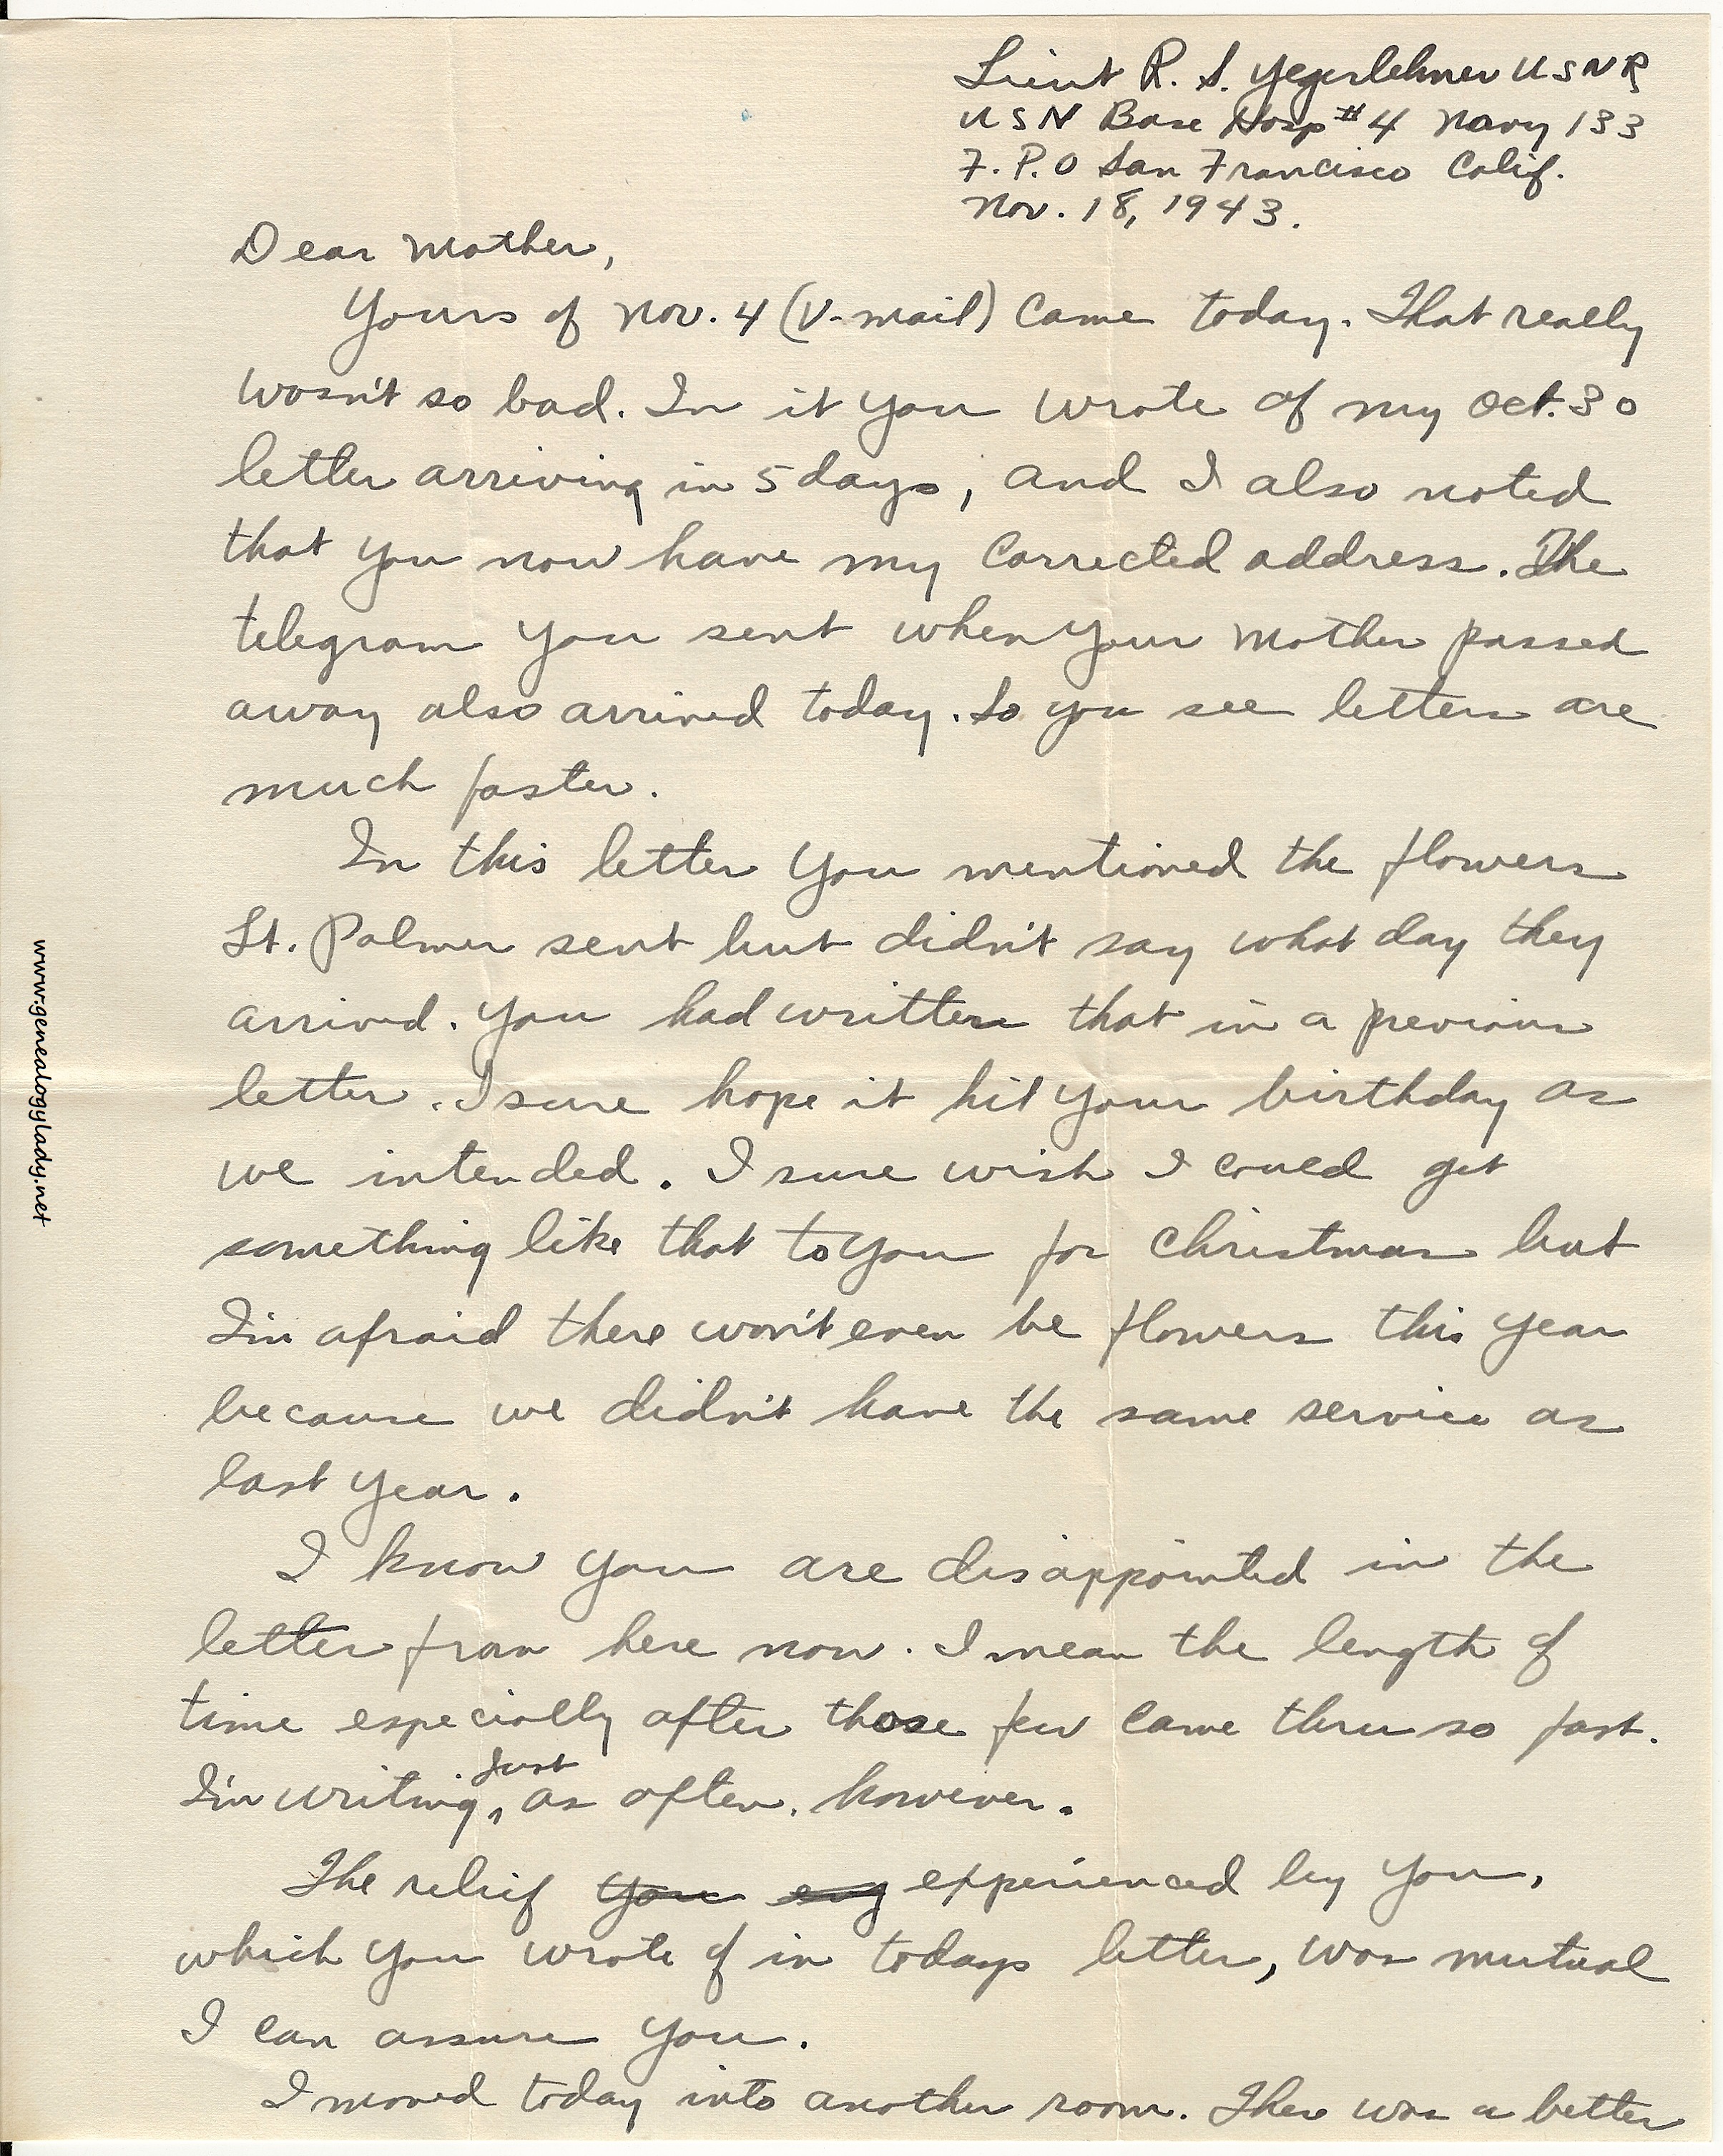 Lieut R. S. Yegerlehner USNR
USN Base Hosp #4 Navy 133
F.P.O San Francisco Calif.
Nov. 18, 1943.
Dear Mother,
Yours of Nov. 4 (V-mail) came today. That really
wasn't so bad. In it you wrote of my Oct. 30
letter arriving in 5 days, and I also noted
that you now have my corrected address. The
telegram you sent when your mother passed
away also arrived today. So you see letters are
much faster.
In this letter you mentioned the flowers
St. Palmer sent but didn't say what day they
arrived. You had written that in a previous
letter. I sure hope it hit your birthday as
we intended. I sure wish I could get
something like that to you for Christmas but
I'm afraid there won't even be flowers this year
because we didn't have the same service as
last year.
I know you are disappointed in the
letter from here now. I mean the length of
time especially after those few came thru so fast.
I'm writing, just as often, however.
The relief you experienced by you,
which you wrote of in todays letter, was mutual
I can assure you.
I moved today into another room. There was a better
www.genealogylady.net